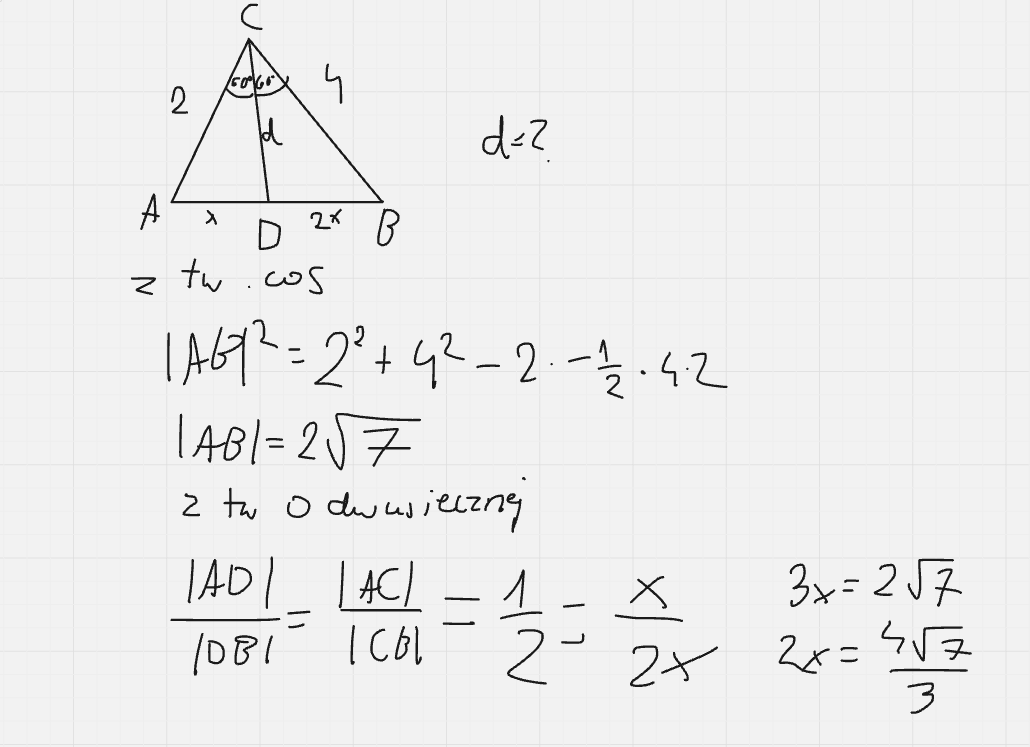 C
60° 60°
2
4
d
d=?
A
x
D
2x
B
z tw. cos
|AB|² = 2² + 4² - 2 · -1/2 · 4·2
|AB| = 2√7
z tw o dwusiecznej
|AD|/|DB| = |AC|/|CB| = 1/2 = x/2x
3x = 2√7
2x = 4√7/3